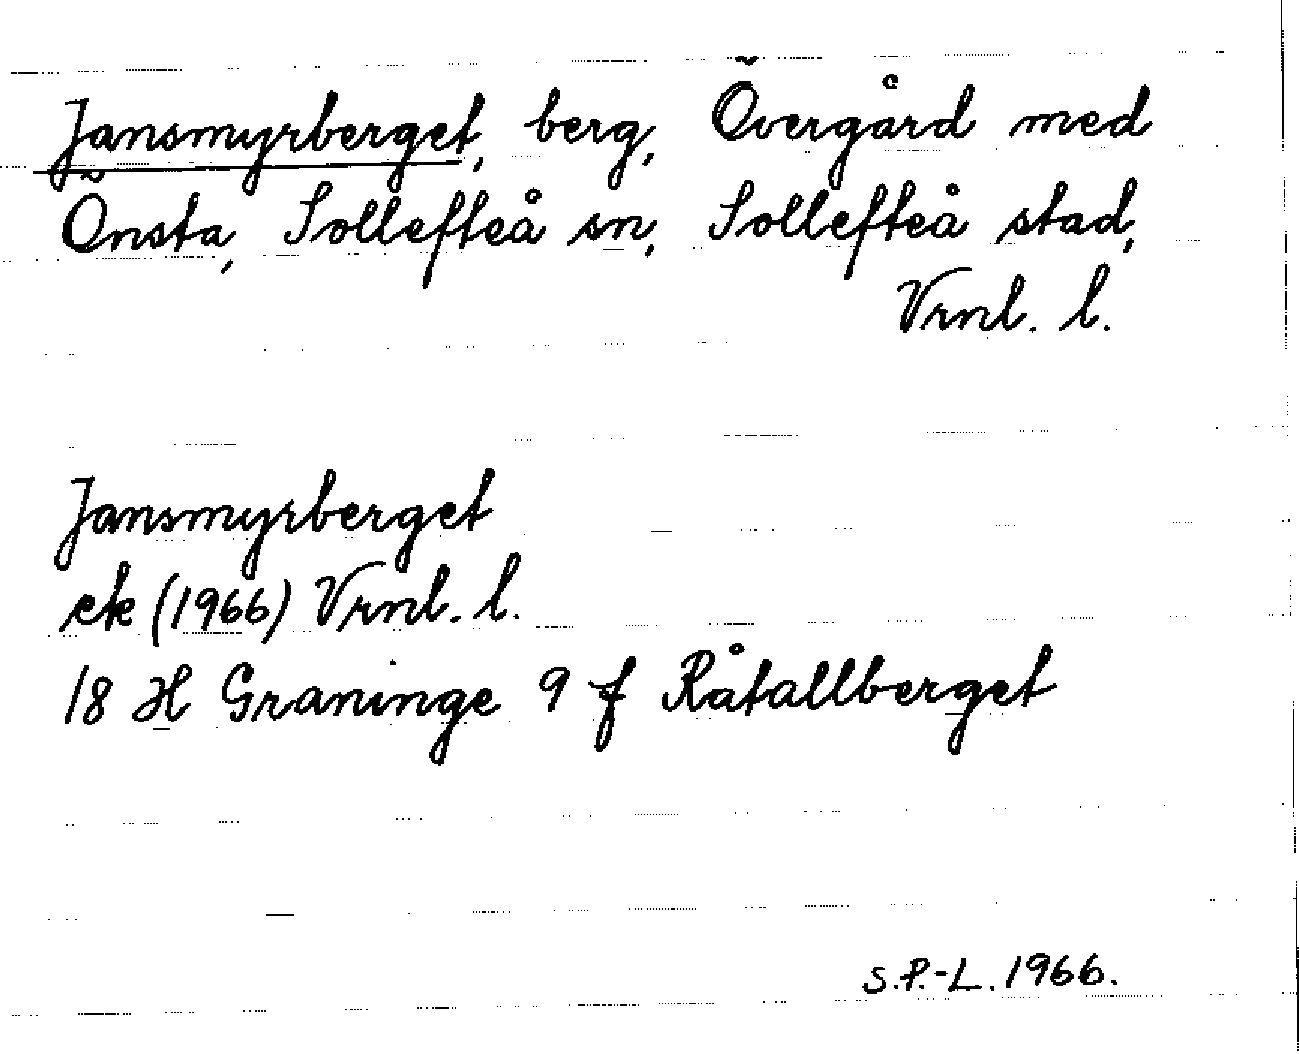 Jansmyrberget, berg, Övergård med
Önsta, Sollefteå sn, Sollefteå stad,
Vrnl. l.
Jansmyrberget
ek (1966) Vrnl. l.
18 H Graninge 9 f Råtallberget
S.P.-L. 1966.